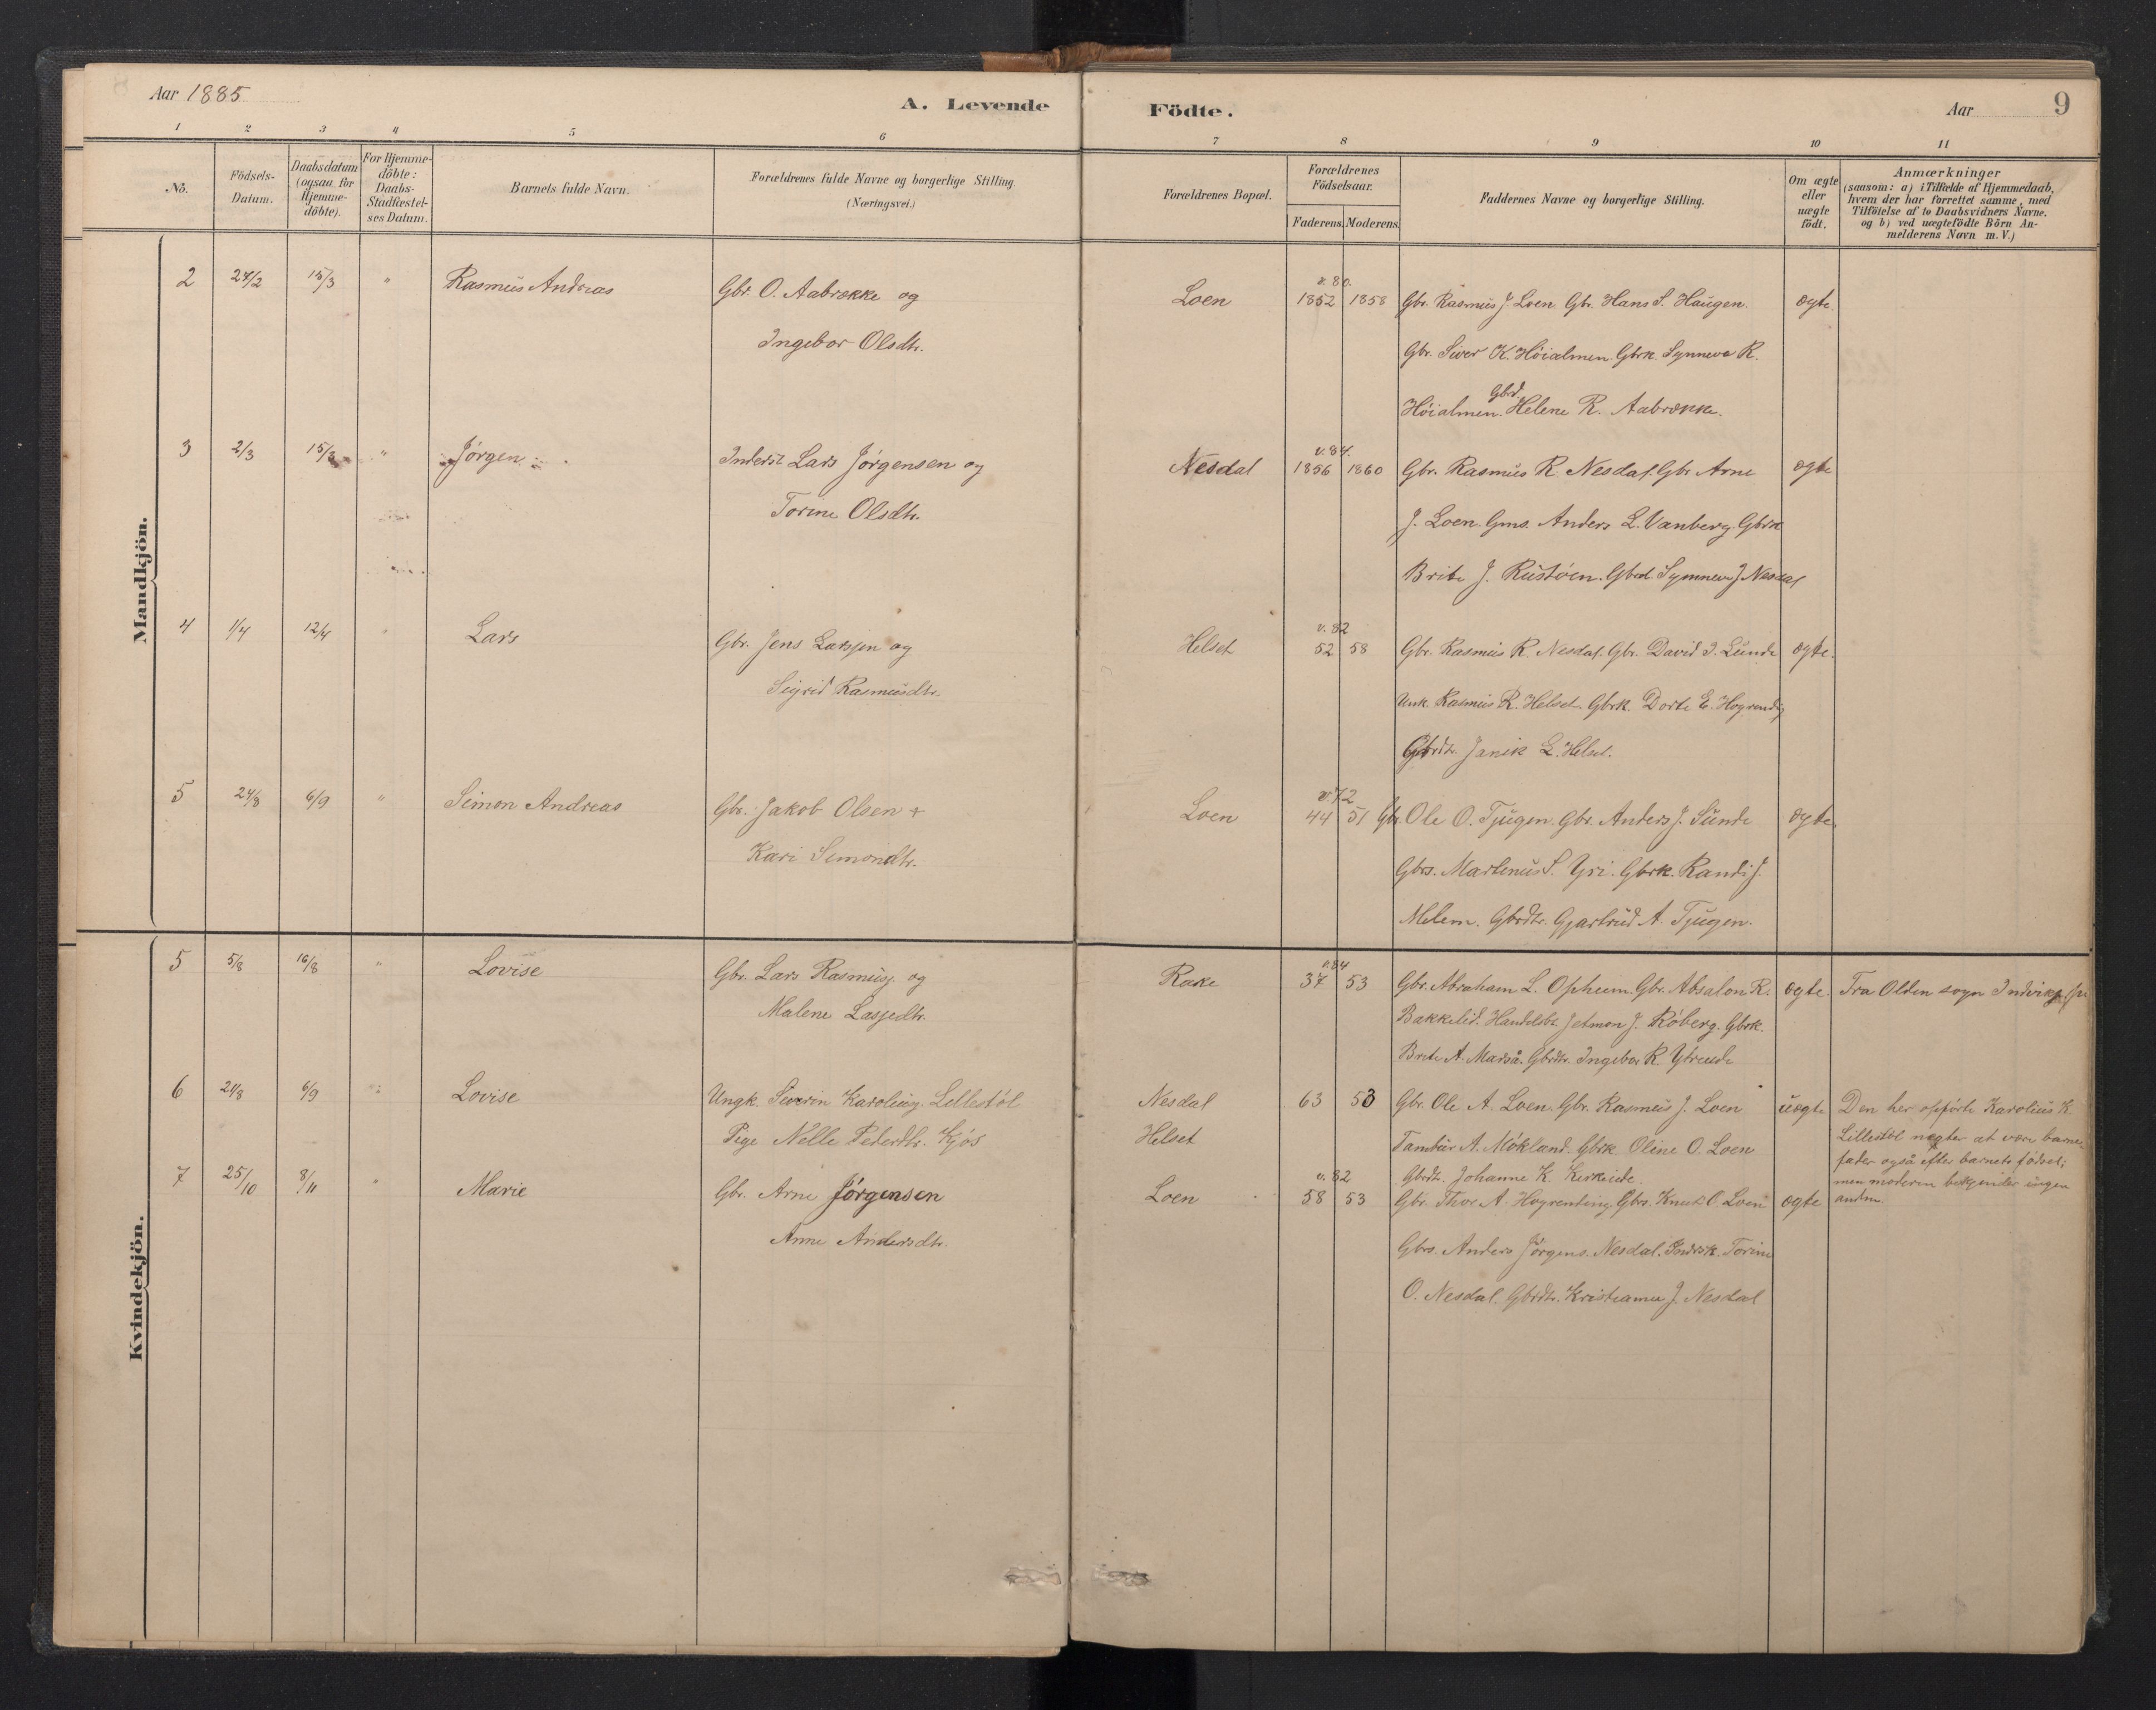 Aar 1885
A. Levende
Födte.
Aar
9
1 2 3 4 5 6 7 8 9 10 11
No.
Födsels-
Datum.
Daabsdatum
(ogsaa for
Hjemme-
döbte).
For Hjemme-
döbte:
Daabs-
Stadfæstel-
ses Datum.
Barnets fulde Navn.
Forældrenes fulde Navne og borgerlige Stilling
(Næringsvei.)
Forældrenes Bopæl.
Forældrenes
Födselsaar.
Faderens. Moderens.
Faddernes Navne og borgerlige Stilling.
Om ægte
eller
uægte
födt.
Anmærkninger
(saasom: a) i Tilfælde af Hjemmedaab,
hvem der har forrettet samme, med
Tilföielse af to Daabsvidners Navne.
og b) ved uægtefödte Börn An-
melderens Navn m.V.)
Mandkjön.
2 24/2 15/3 " Rasmus Andreas Gbr. O. Aabrække og
Ingebor Olsdtr.
Loen
v. 80.
1852 1858
Gbr. Rasmus J. Loen. Gbr. Hans S. Haugen.
Gbr. Siver K. Höialmen. Gbrk. Synneva R.
Gbrd.
Höialmen. Helene R. Aabrække.
ægte.
3 2/3 15/3 " Jörgen Inderst Lars Jörgensen og
Torine Olsdtr.
Nesdal
v. 84.
1856 1860
Gbr. Rasmus R. Nesdal. Gbr Arne
J. Loen. Gms. Anders L. Vanberg. Gbrk
Brite J. Rustöen. Gbrd. Synneva J. Nesdal
ægte
4 1/4 12/4 " Lars Gbr. Jens Larssen og
Sigrid Rasmusdtr.
Helset
v. 82
52 58
Gbr. Rasmus R. Nesdal. Gbr. David I. Sunde
Unk. Rasmus R. Helset. Gbrk. Dorte E. Hogrending
Gbrdtr. Janik L. Helset.
ægte.
5 24/8 6/9 " Simon Andreas Gbr. Jakob Olsen +
Kari Simondtr.
Loen
v. 72
44 51
Gbr. Ole O. Tjugen. Gbr. Anders J. Sunde
Gbrs. Martenus S. Yri. Gbrk. Randi J.
Melem. Gbrdtr. Gjartrud A. Tjugen.
ægte.
Kvindekjön.
5 5/8 16/8 " Lovise Gbr. Lars Rasmusg. og
Malene Lassedtr.
Rake
v. 84
37 53
Gbr. Abraham L. Opheim. Gbr. Absalon R.
Bakkelid. Handelsbt. Jetmon J. Roberg. Gbrk.
Brite A. Marså. Gbrdtr. Ingebor R.
ægte.
Fra Olden sogn
6 24/8 6/9 Lovise Ungk. Severin Karolusg. Lillestöl
Pige Nelle Pederdtr. Kjös
Nesdal
Helset
63 53
Gbr. Ole A. Loen. Gbr. Rasmus J. Loen
Tambur A. Mökland. Gbrk. Oline O. Loen
Gbrdt. Johanne K. Kirkeide.
uægte
Den her opförte Karolius K.
Lillestöl nægter at være barne-
fader også efter barnets födsel;
men moderen bekjender ingen
anden.
7 25/10 8/11 " Marie Gbr. Arne Jörgensen
Anne Andersdtr.
Loen
v. 82
58 53
Gbr. Thor A. Hogrending. Gbrs. Knut O. Loen
Gbrs. Anders Jörgens. Nesdal. Indrsk. Torine
O. Nesdal. Gbrdtr. Kristianne J. Nesdal
ægte